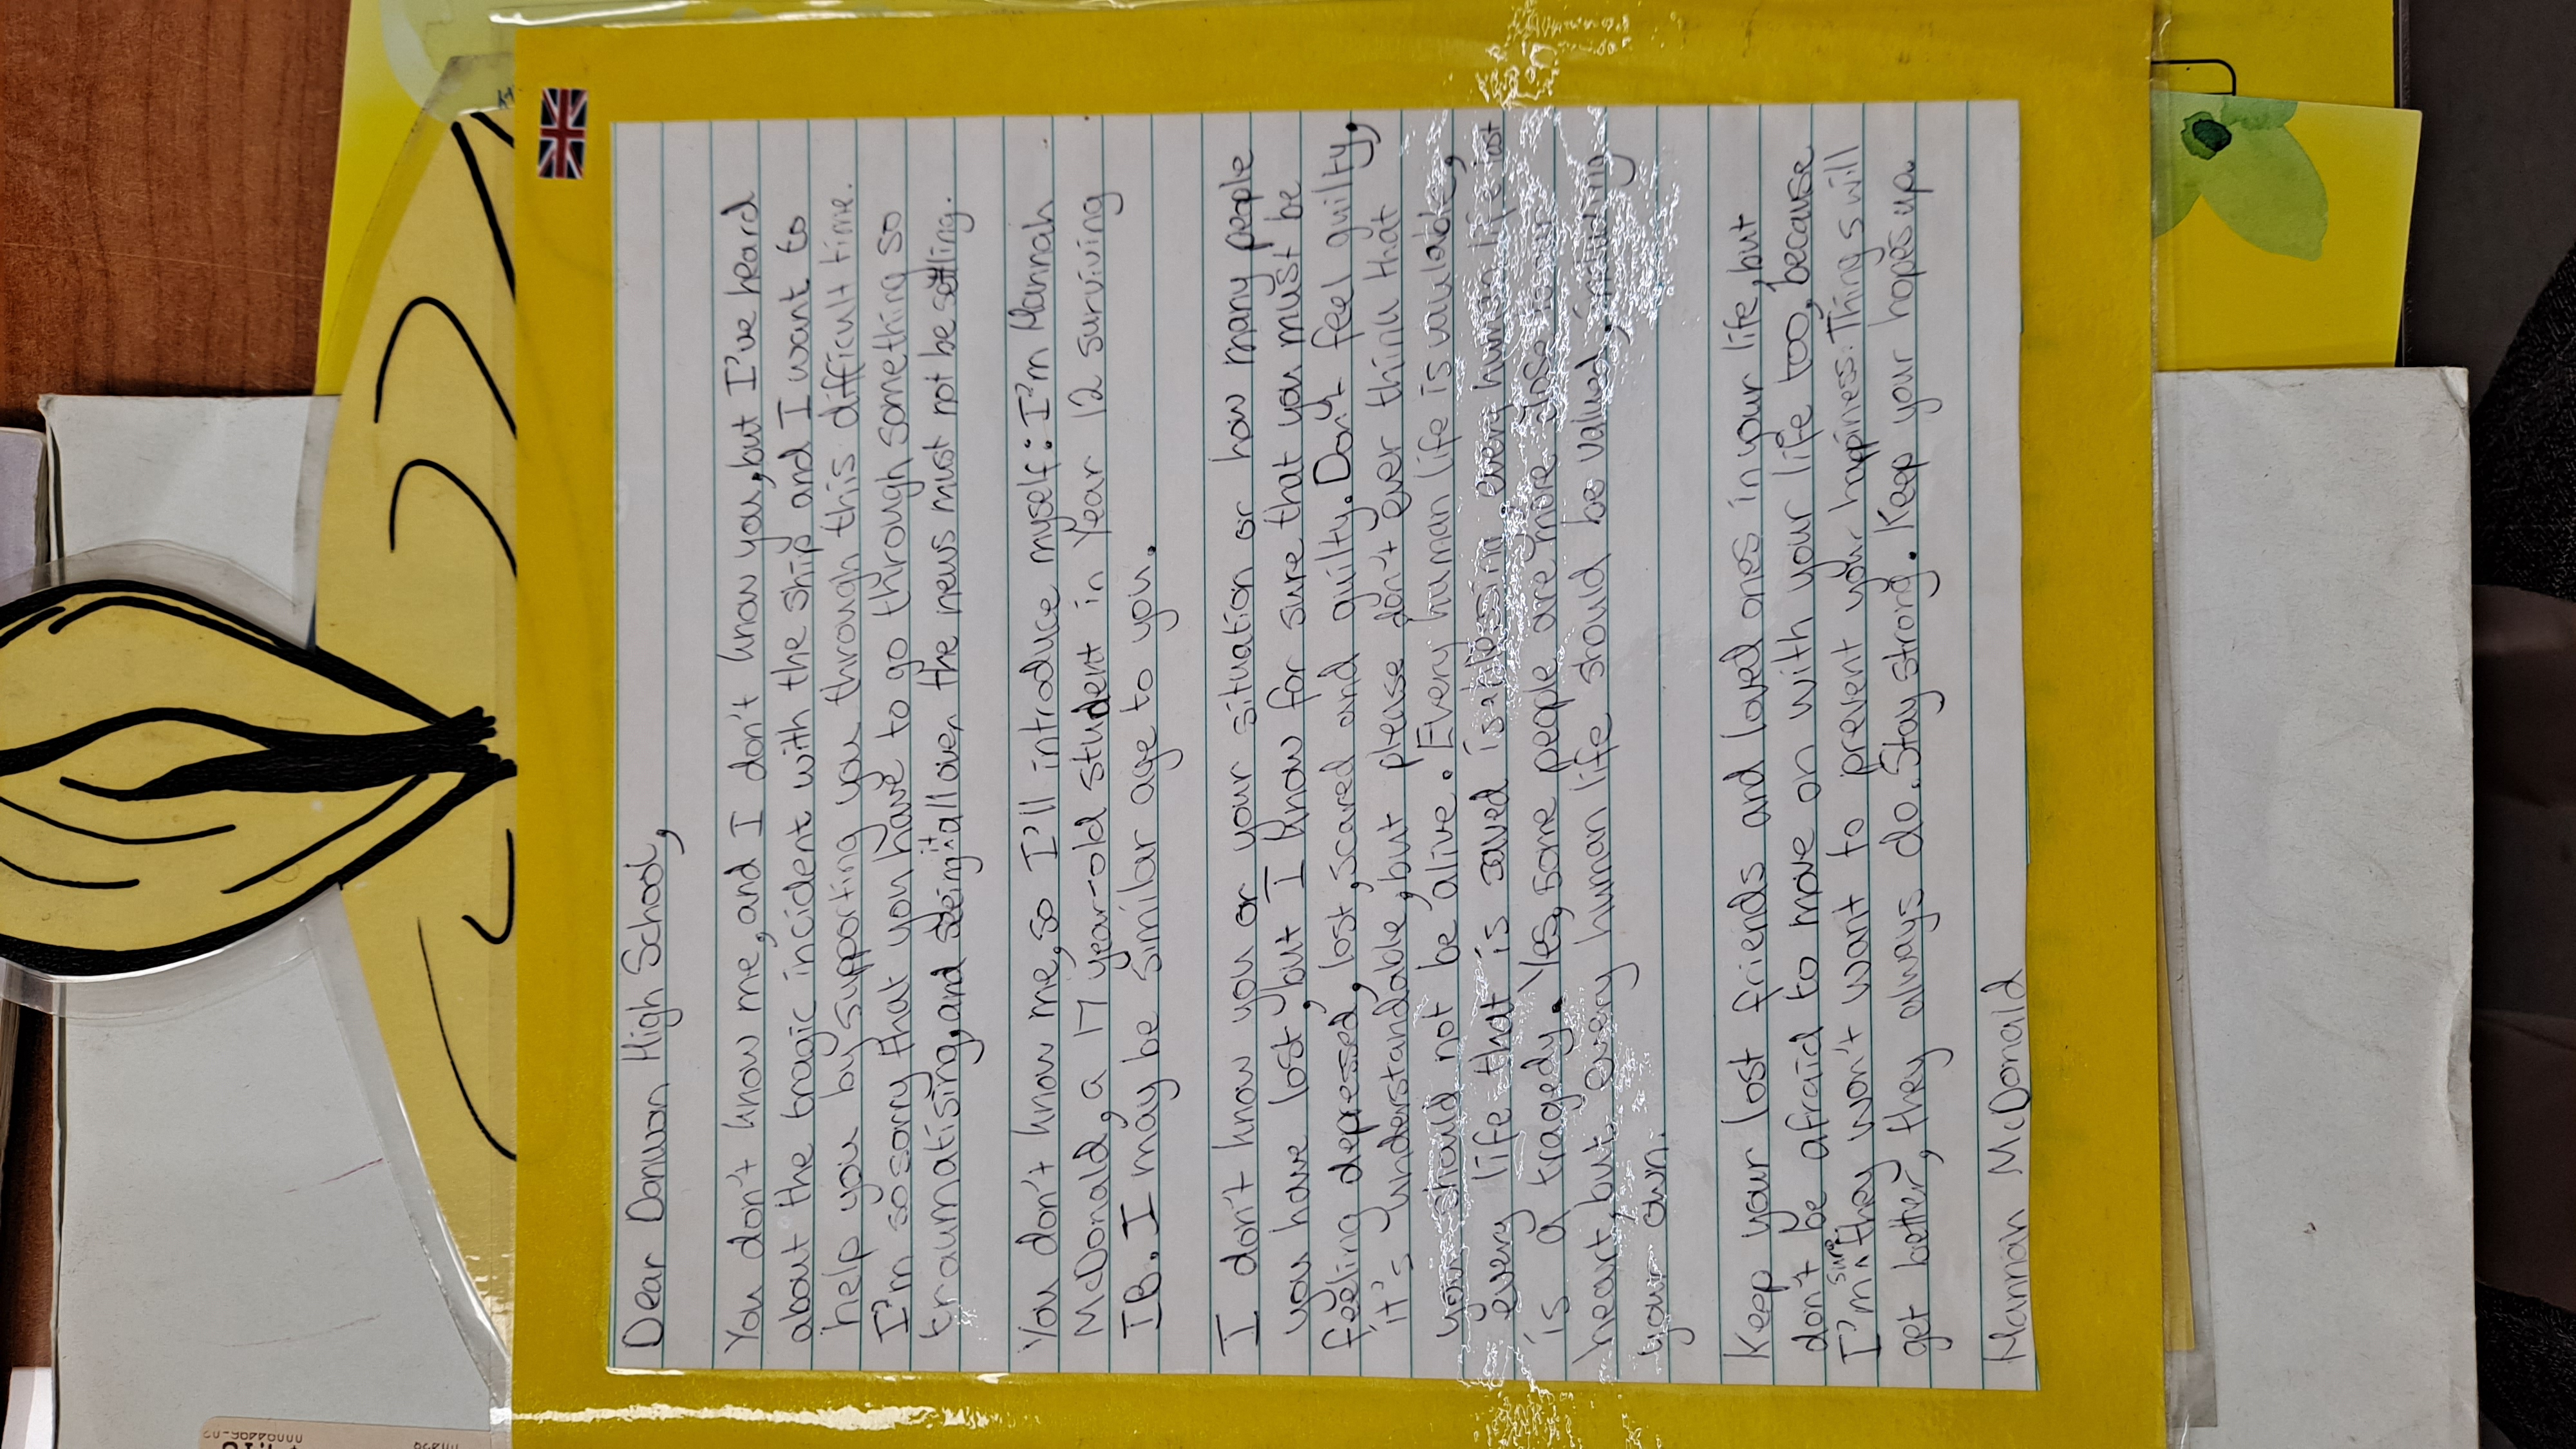 Dear Danwon High School,
You don't know me, and I don't know you, but I've heard
about the tragic incident with the ship and I want to
help you by supporting you through this difficult time.
I'm so sorry that you have to go through something so
traumatising, and seeing it all over the news must not be settling.
You don't know me, so I'll introduce myself: I'm Hannah
McDonald, a 17 year-old student in Year 12 surviving
IB. I may be similar age to you.
I don't know you or your situation or how many people
you have lost, but I know for sure that you must be
feeling depressed, lost, scared and guilty. Don't feel guilty,
it's understandable, but please don't ever think that
you should not be alive. Every human life is vaulable,
every life that is saved is a blessing every human life lost
is a tragedy. Yes, some people are more close to our
heart, but every human life should be valued, including
your own.
Keep your lost friends and loved ones in your life, but
don't be afraid to move on with your life too, because
I'm sure they won't want to prevent your hapiness. Things will
get better, they always do. Stay strong. Keep your hopes up.
Hannah McDonald